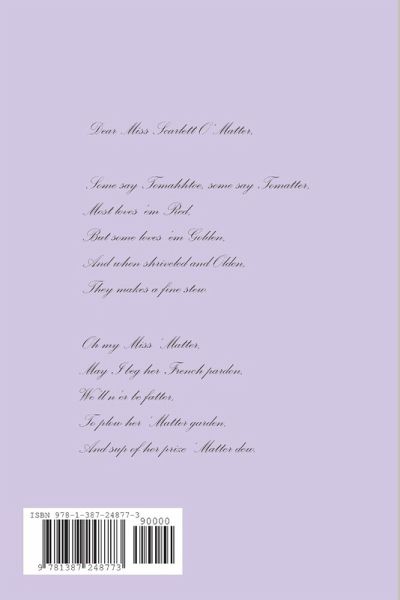 Dear Miss Scarlett O'Matter,
Some say Tomahhtoe, some say Tomatter,
Most loves 'em Red,
But some loves 'em Golden,
And when shriveled and Olden,
They makes a fine stew.
Oh my Miss 'Matter,
May I beg her French pardon,
We'll n'er be fatter,
To plow her 'Matter garden,
And sup of her prize 'Matter dew.
ISBN 978-1-387-24877-3
90000
9 781387 248773